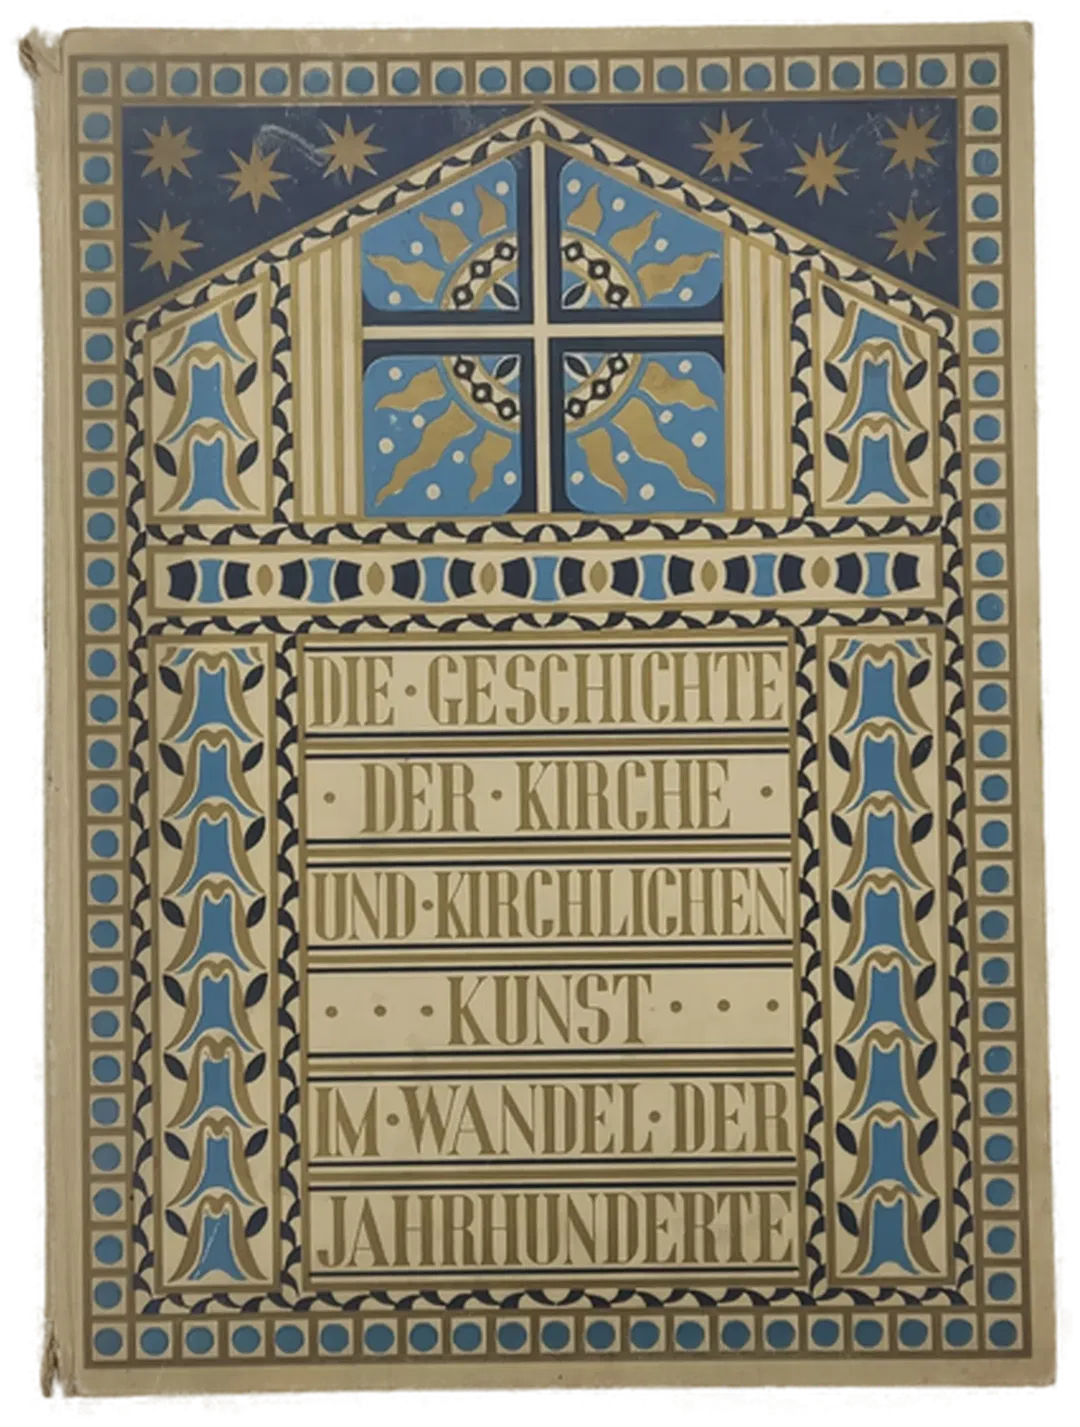 DIE·GESCHICHTE
· DER·KIRCHE ·
UND·KIRCHLICHEN
· · · KUNST · · ·
IM·WANDEL·DER
JAHRHUNDERTE